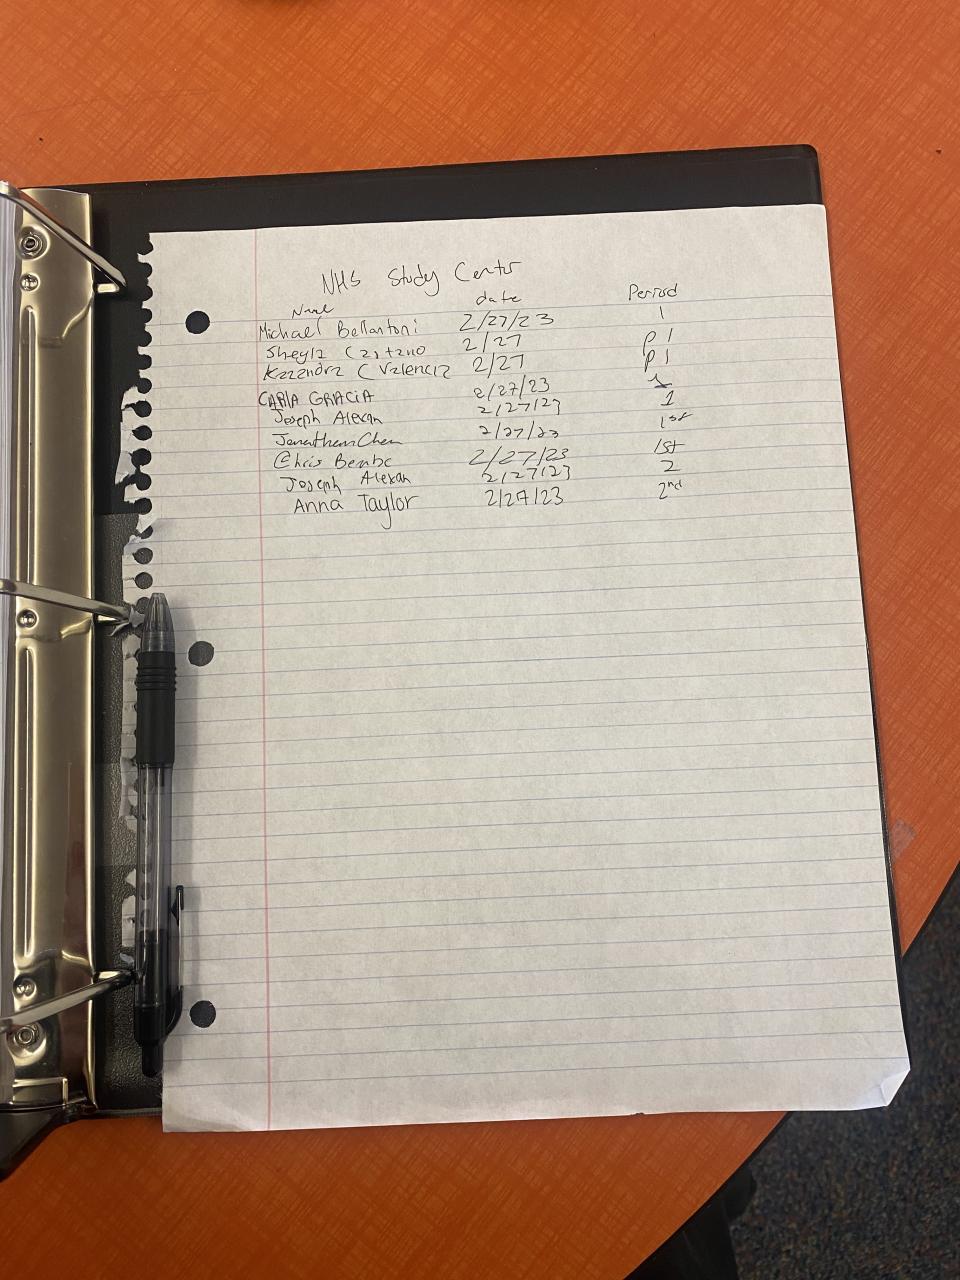 NHS Study Center
Name date Period
Michael Bellantoni 2/27/23 1
Sheyla 2/27 P 1
Kazandra Valencia 2/27 P 1
CARLA GRACIA 2/27/23 1
Joseph Alexan 2/27/23 1
Jonathan Chen 2/27/23 1st
Chris 2/27/23 1st
Joseph Alexan 2/27/23 2
Anna Taylor 2/27/23 2nd